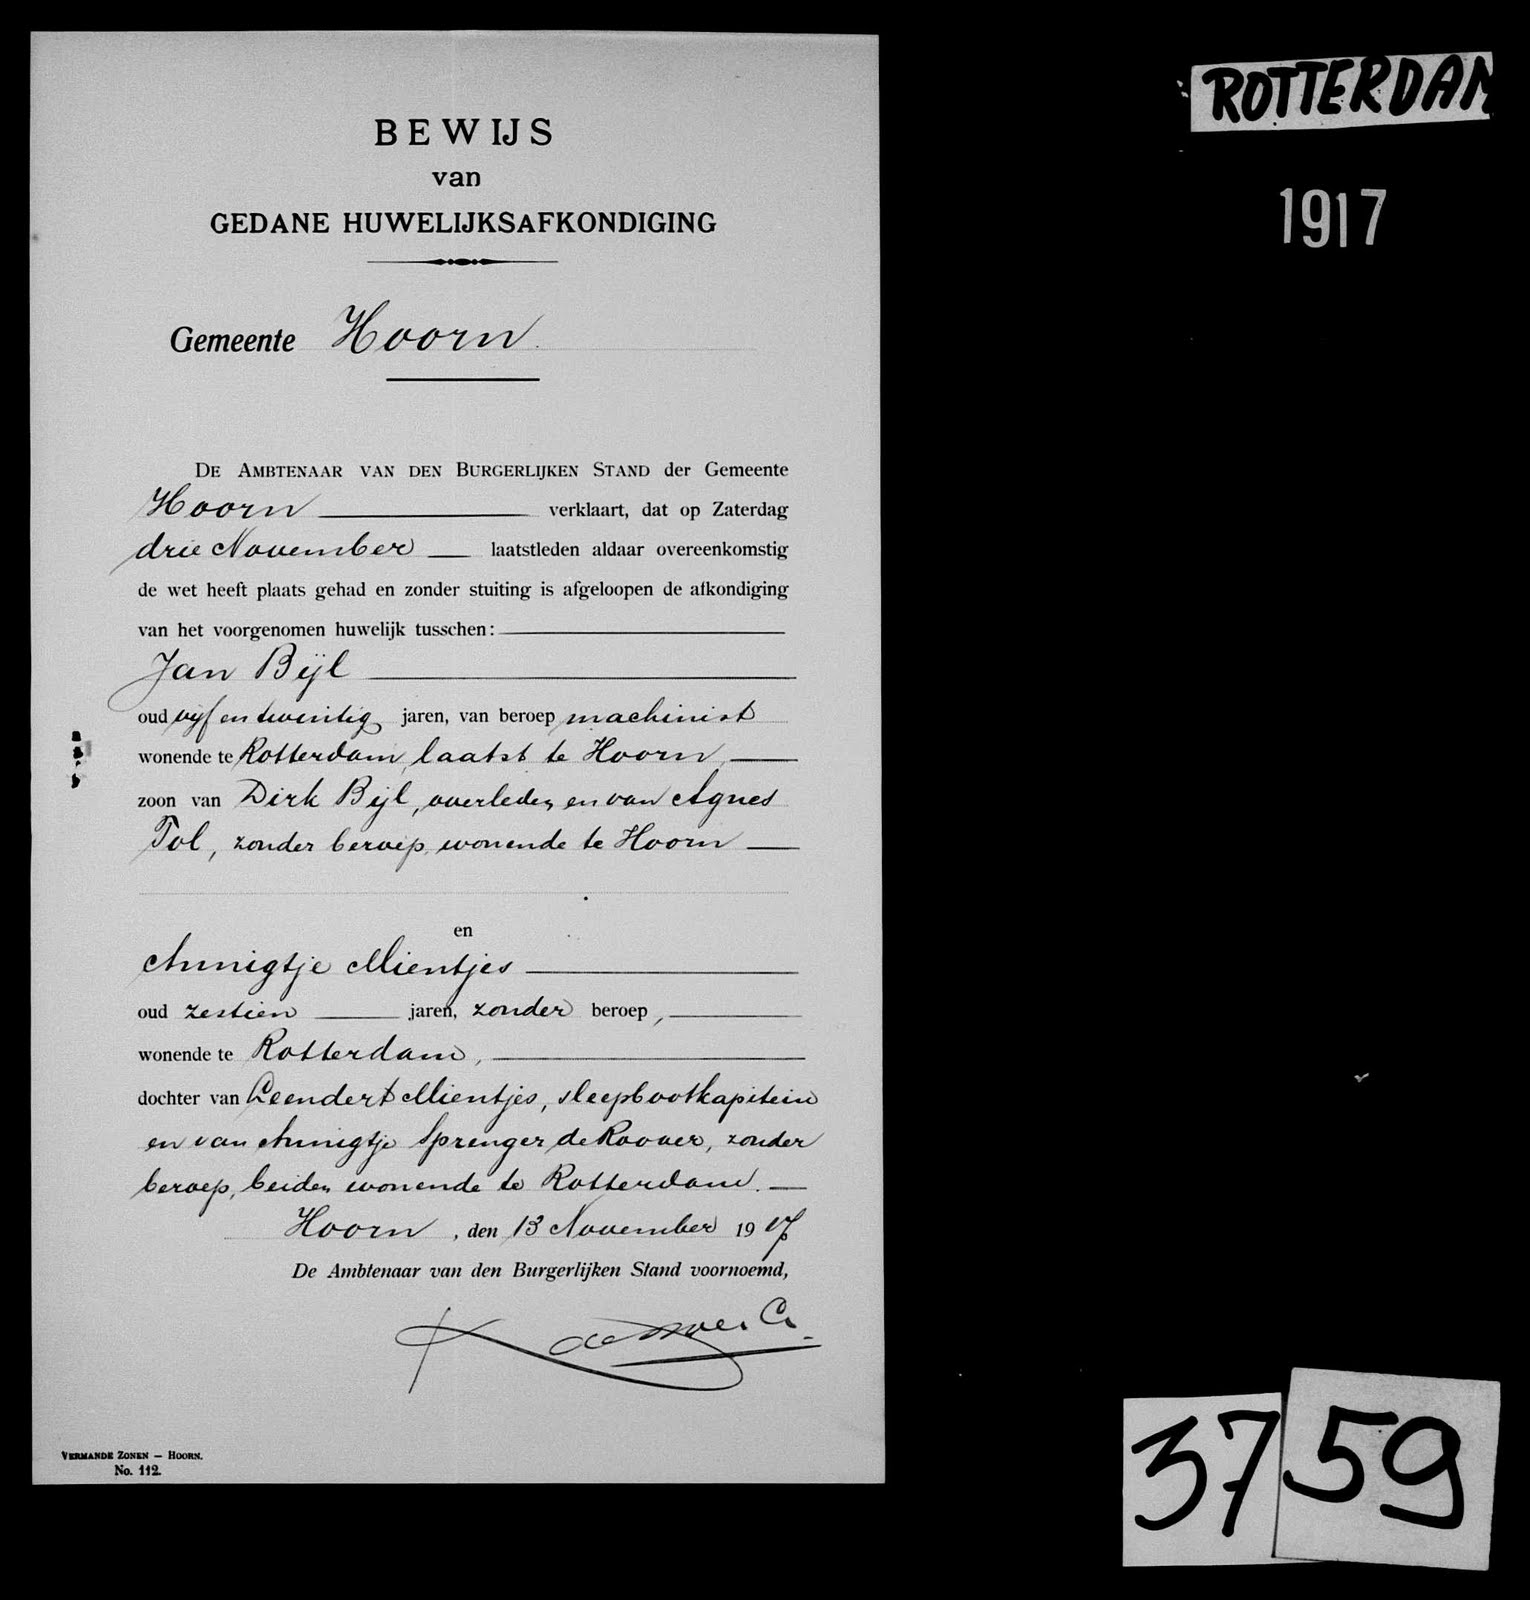 BEWIJS
van
GEDANE HUWELIJKSAFKONDIGING
Gemeente Hoorn.
DE AMBTENAAR VAN DEN BURGERLIJKEN STAND der Gemeente
Hoorn verklaart, dat op Zaterdag
drie November laatstleden aldaar overeenkomstig
de wet heeft plaats gehad en zonder stuiting is afgeloopen de afkondiging
van het voorgenomen huwelijk tusschen:
Jan Bijl
oud vijf en twintig jaren, van beroep machinist
wonende te Rotterdam, laatst te Hoorn,
zoon van Dirk Bijl, overleden en van Agnes
Tol, zonder beroep, wonende te Hoorn
en
Annigtje Mientjes
oud zestien jaren, zonder beroep,
wonende te Rotterdam,
dochter van Leendert Mientjes, sleepbootkapitein
en van Annigtje Sprenger de Roover, zonder
beroep, beiden wonende te Rotterdam.
Hoorn, den 13 November 1917
De Ambtenaar van den Burgerlijken Stand voornoemd,
VERMANDE ZONEN — HOORN.
No. 112.
ROTTERDAM
1917
37 59